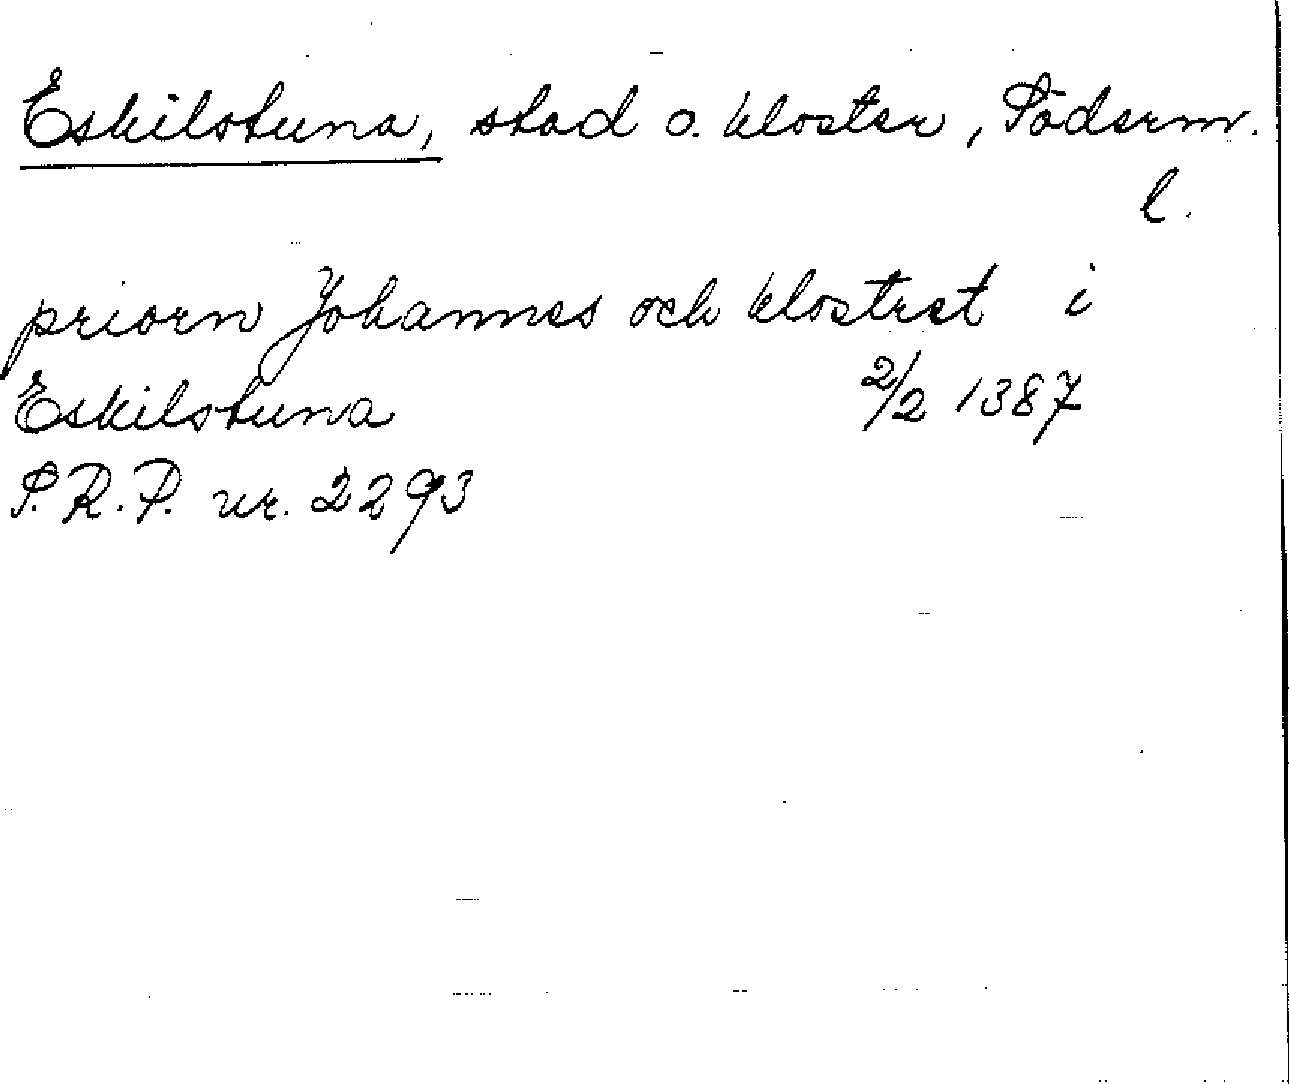 Eskilstuna, stad o. kloster, Söderm.
l.
priorn Johannes och klostret i
Eskilstuna 2/2 1387
S.R.P. nr. 2293